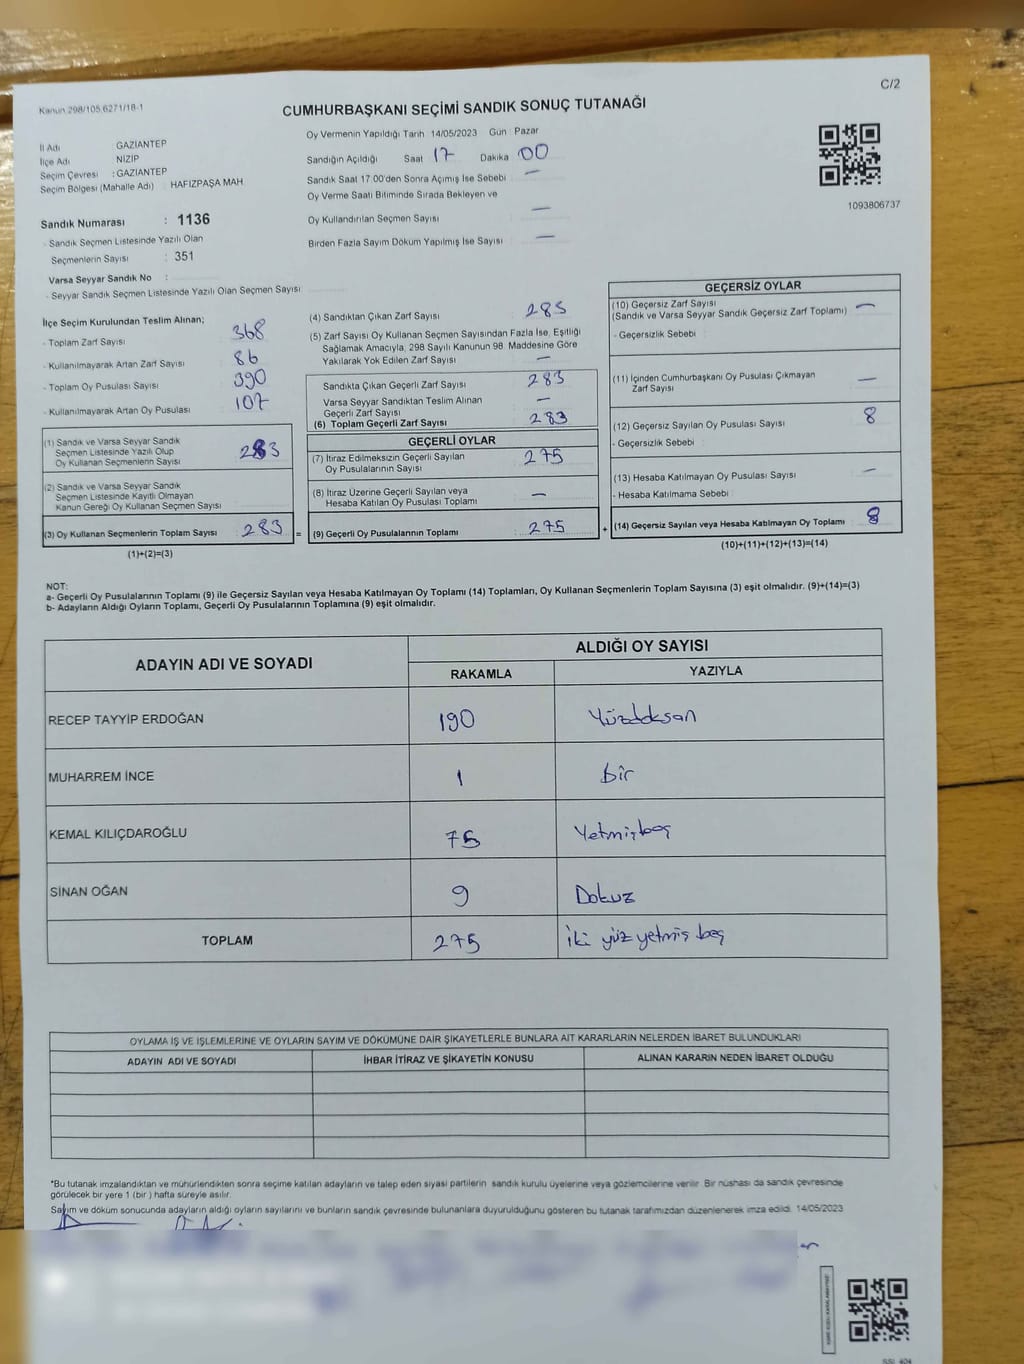 C/2
Kanun 298/105,6271/18-1
CUMHURBAŞKANI SEÇİMİ SANDIK SONUÇ TUTANAĞI
İl Adı GAZİANTEP
İlçe Adı NİZİP
Seçim Çevresi : GAZİANTEP
Seçim Bölgesi (Mahalle Adı) HAFIZPAŞA MAH
Sandık Numarası : 1136
- Sandık Seçmen Listesinde Yazılı Olan
Seçmenlerin Sayısı : 351
Varsa Seyyar Sandık No :
- Seyyar Sandık Seçmen Listesinde Yazılı Olan Seçmen Sayısı:
Oy Vermenin Yapıldığı Tarih 14/05/2023 Gün : Pazar
Sandığın Açıldığı Saat 17 Dakika 00
Sandık Saat 17.00'den Sonra Açımış İse Sebebi —
Oy Verme Saati Bitiminde Sırada Bekleyen ve
Oy Kullandırılan Seçmen Sayısı —
Birden Fazla Sayım Döküm Yapılmış İse Sayısı —
1093806737
İlçe Seçim Kurulundan Teslim Alınan;
- Toplam Zarf Sayısı 368
- Kullanılmayarak Artan Zarf Sayısı 86
- Toplam Oy Pusulası Sayısı 390
- Kullanılmayarak Artan Oy Pusulası 107
(1) Sandık ve Varsa Seyyar Sandık
Seçmen Listesinde Yazılı Olup
Oy Kullanan Seçmenlerin Sayısı 283
(2) Sandık ve Varsa Seyyar Sandık
Seçmen Listesinde Kayıtlı Olmayan
Kanun Gereği Oy Kullanan Seçmen Sayısı
(3) Oy Kullanan Seçmenlerin Toplam Sayısı : 283 =
(1)+(2)=(3)
(4) Sandıktan Çıkan Zarf Sayısı : 283
(5) Zarf Sayısı Oy Kullanan Seçmen Sayısından Fazla İse, Eşitliği
Sağlamak Amacıyla, 298 Sayılı Kanunun 98. Maddesine Göre
Yakılarak Yok Edilen Zarf Sayısı —
Sandıkta Çıkan Geçerli Zarf Sayısı : 283
Varsa Seyyar Sandıktan Teslim Alınan
Geçerli Zarf Sayısı —
(6) Toplam Geçerli Zarf Sayısı : 283
GEÇERLİ OYLAR
(7) İtiraz Edilmeksizin Geçerli Sayılan
Oy Pusulalarının Sayısı : 275
(8) İtiraz Üzerine Geçerli Sayılan veya
Hesaba Katılan Oy Pusulası Toplamı —
(9) Geçerli Oy Pusulalarının Toplamı : 275 +
GEÇERSİZ OYLAR
(10) Geçersiz Zarf Sayısı
(Sandık ve Varsa Seyyar Sandık Geçersiz Zarf Toplamı) —
- Geçersizlik Sebebi :
(11) İçinden Cumhurbaşkanı Oy Pusulası Çıkmayan
Zarf Sayısı —
(12) Geçersiz Sayılan Oy Pusulası Sayısı : 8
- Geçersizlik Sebebi
(13) Hesaba Katılmayan Oy Pusulası Sayısı —
- Hesaba Katılmama Sebebi
(14) Geçersiz Sayılan veya Hesaba Katılmayan Oy Toplamı : 8
(10)+(11)+(12)+(13)=(14)
NOT:
a- Geçerli Oy Pusulalarının Toplamı (9) ile Geçersiz Sayılan veya Hesaba Katılmayan Oy Toplamı (14) Toplamları, Oy Kullanan Seçmenlerin Toplam Sayısına (3) eşit olmalıdır. (9)+(14)=(3)
b- Adayların Aldığı Oyların Toplamı, Geçerli Oy Pusulalarının Toplamına (9) eşit olmalıdır.
ADAYIN ADI VE SOYADI
ALDIĞI OY SAYISI
RAKAMLA YAZIYLA
RECEP TAYYİP ERDOĞAN 190 Yüzdoksan
MUHARREM İNCE 1 bir
KEMAL KILIÇDAROĞLU 75 Yetmişbeş
SİNAN OĞAN 9 Dokuz
TOPLAM 275 iki yüz yetmiş beş
OYLAMA İŞ VE İŞLEMLERİNE VE OYLARIN SAYIM VE DÖKÜMÜNE DAİR ŞİKAYETLERLE BUNLARA AİT KARARLARIN NELERDEN İBARET BULUNDUKLARI
ADAYIN ADI VE SOYADI İHBAR İTİRAZ VE ŞİKAYETİN KONUSU ALINAN KARARIN NEDEN İBARET OLDUĞU
*Bu tutanak imzalandıktan ve mühürlendikten sonra seçime katılan adayların ve talep eden siyasi partilerin sandık kurulu üyelerine veya gözlemcilerine verilir. Bir nüshası da sandık çevresinde
görülecek bir yere 1 (bir ) hafta süreyle asılır.
Sayım ve döküm sonucunda adayların aldığı oyların sayılarını ve bunların sandık çevresinde bulunanlara duyurulduğunu gösteren bu tutanak tarafımızdan düzenlenerek imza edildi. 14/05/2023